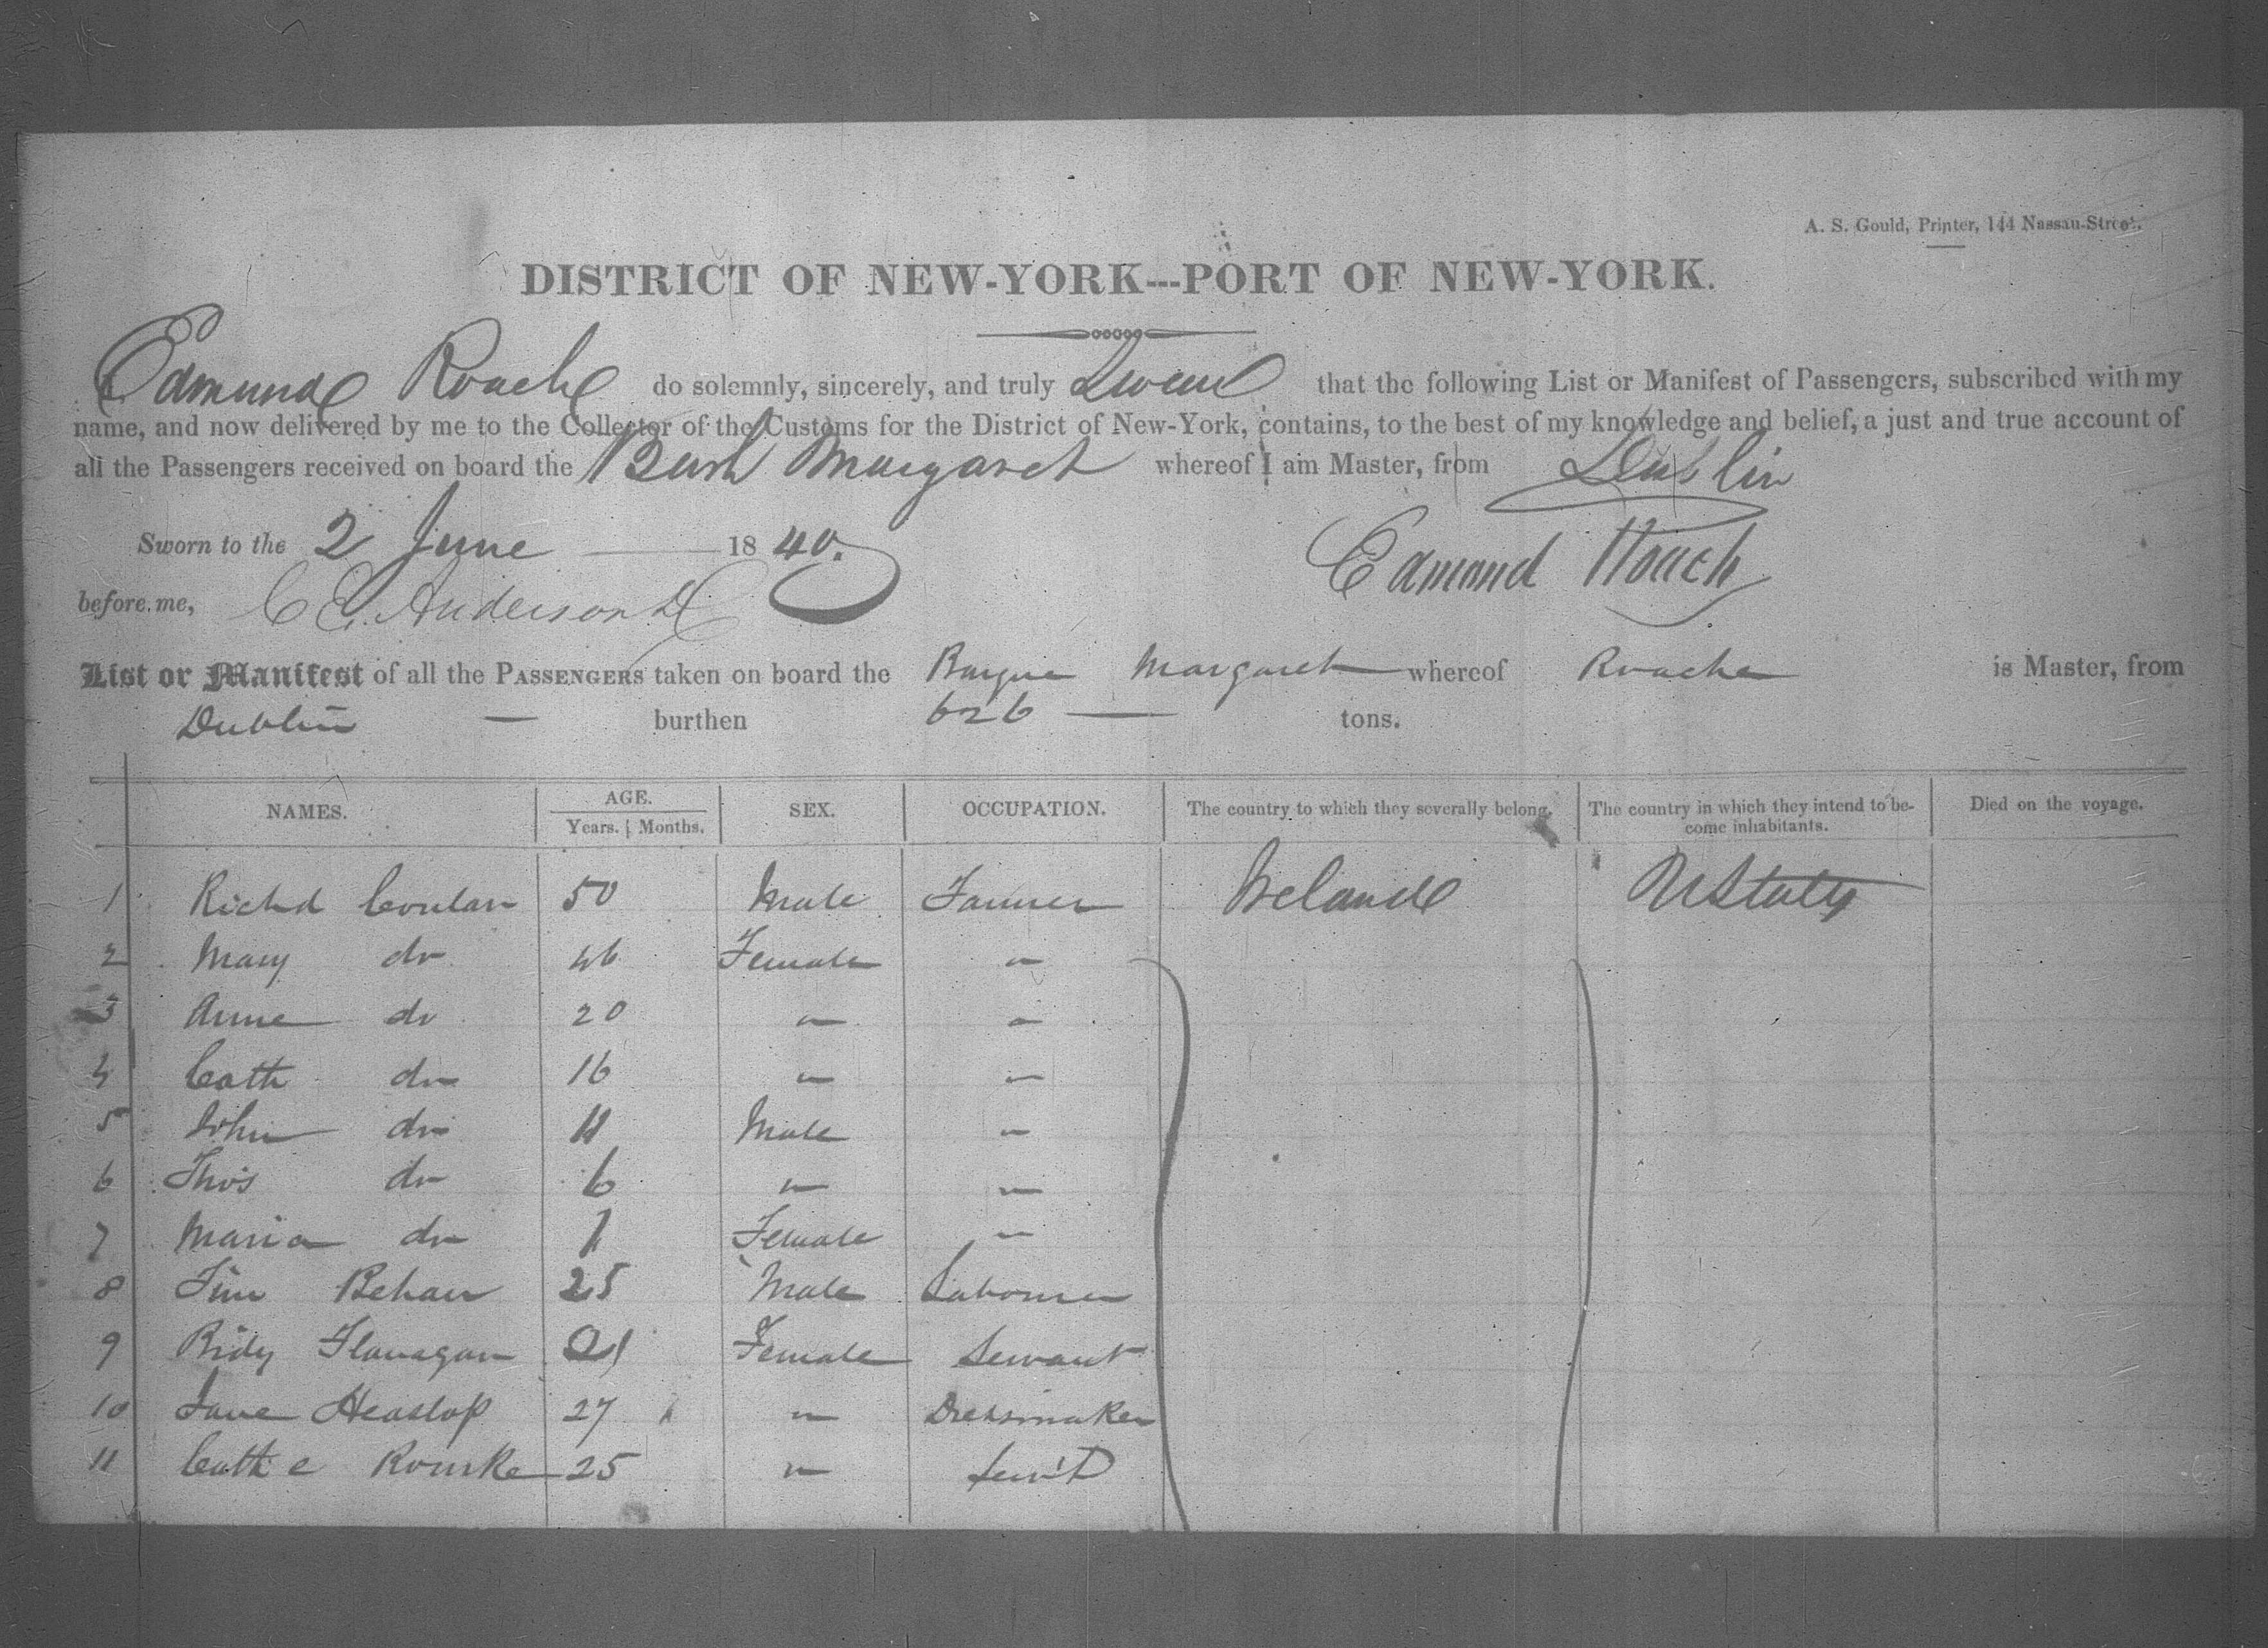 A. S. Gould, Printer, 144 Nassau-Street.
DISTRICT OF NEW-YORK---PORT OF NEW-YORK.
Edmund Roache do solemnly, sincerely, and truly Swear that the following List or Manifest of Passengers, subscribed with my
name, and now delivered by me to the Collector of the Customs for the District of New-York, contains, to the best of my knowledge and belief, a just and true account of
all the Passengers received on board the Bark Margaret whereof I am Master, from Dublin
Sworn to the 2 June 1840.
Edmond Roach
before me, C E Anderson DC
List or Manifest of all the PASSENGERS taken on board the Barque Margaret whereof Roache is Master, from
Dublin — burthen 626 — tons.
NAMES. AGE. SEX. OCCUPATION. The country to which they severally belong. The country in which they intend to be- Died on the voyage.
Years. Months. come inhabitants.
1 Richd Conlan 50 Male Farmer Ireland UStates
2 Mary do 46 Female "
3 Anne do 20 " "
4 Cath do 16 " "
5 John do 11 Male "
6 Thos do 6 " "
7 Maria do 1 Female "
8 Tim Behan 25 Male Labourer
9 Bidy Flanagan 21 Female Servant
10 Jane Heaslop 27 " Dressmaker
11 Cath e Rourke 25 " Serv't